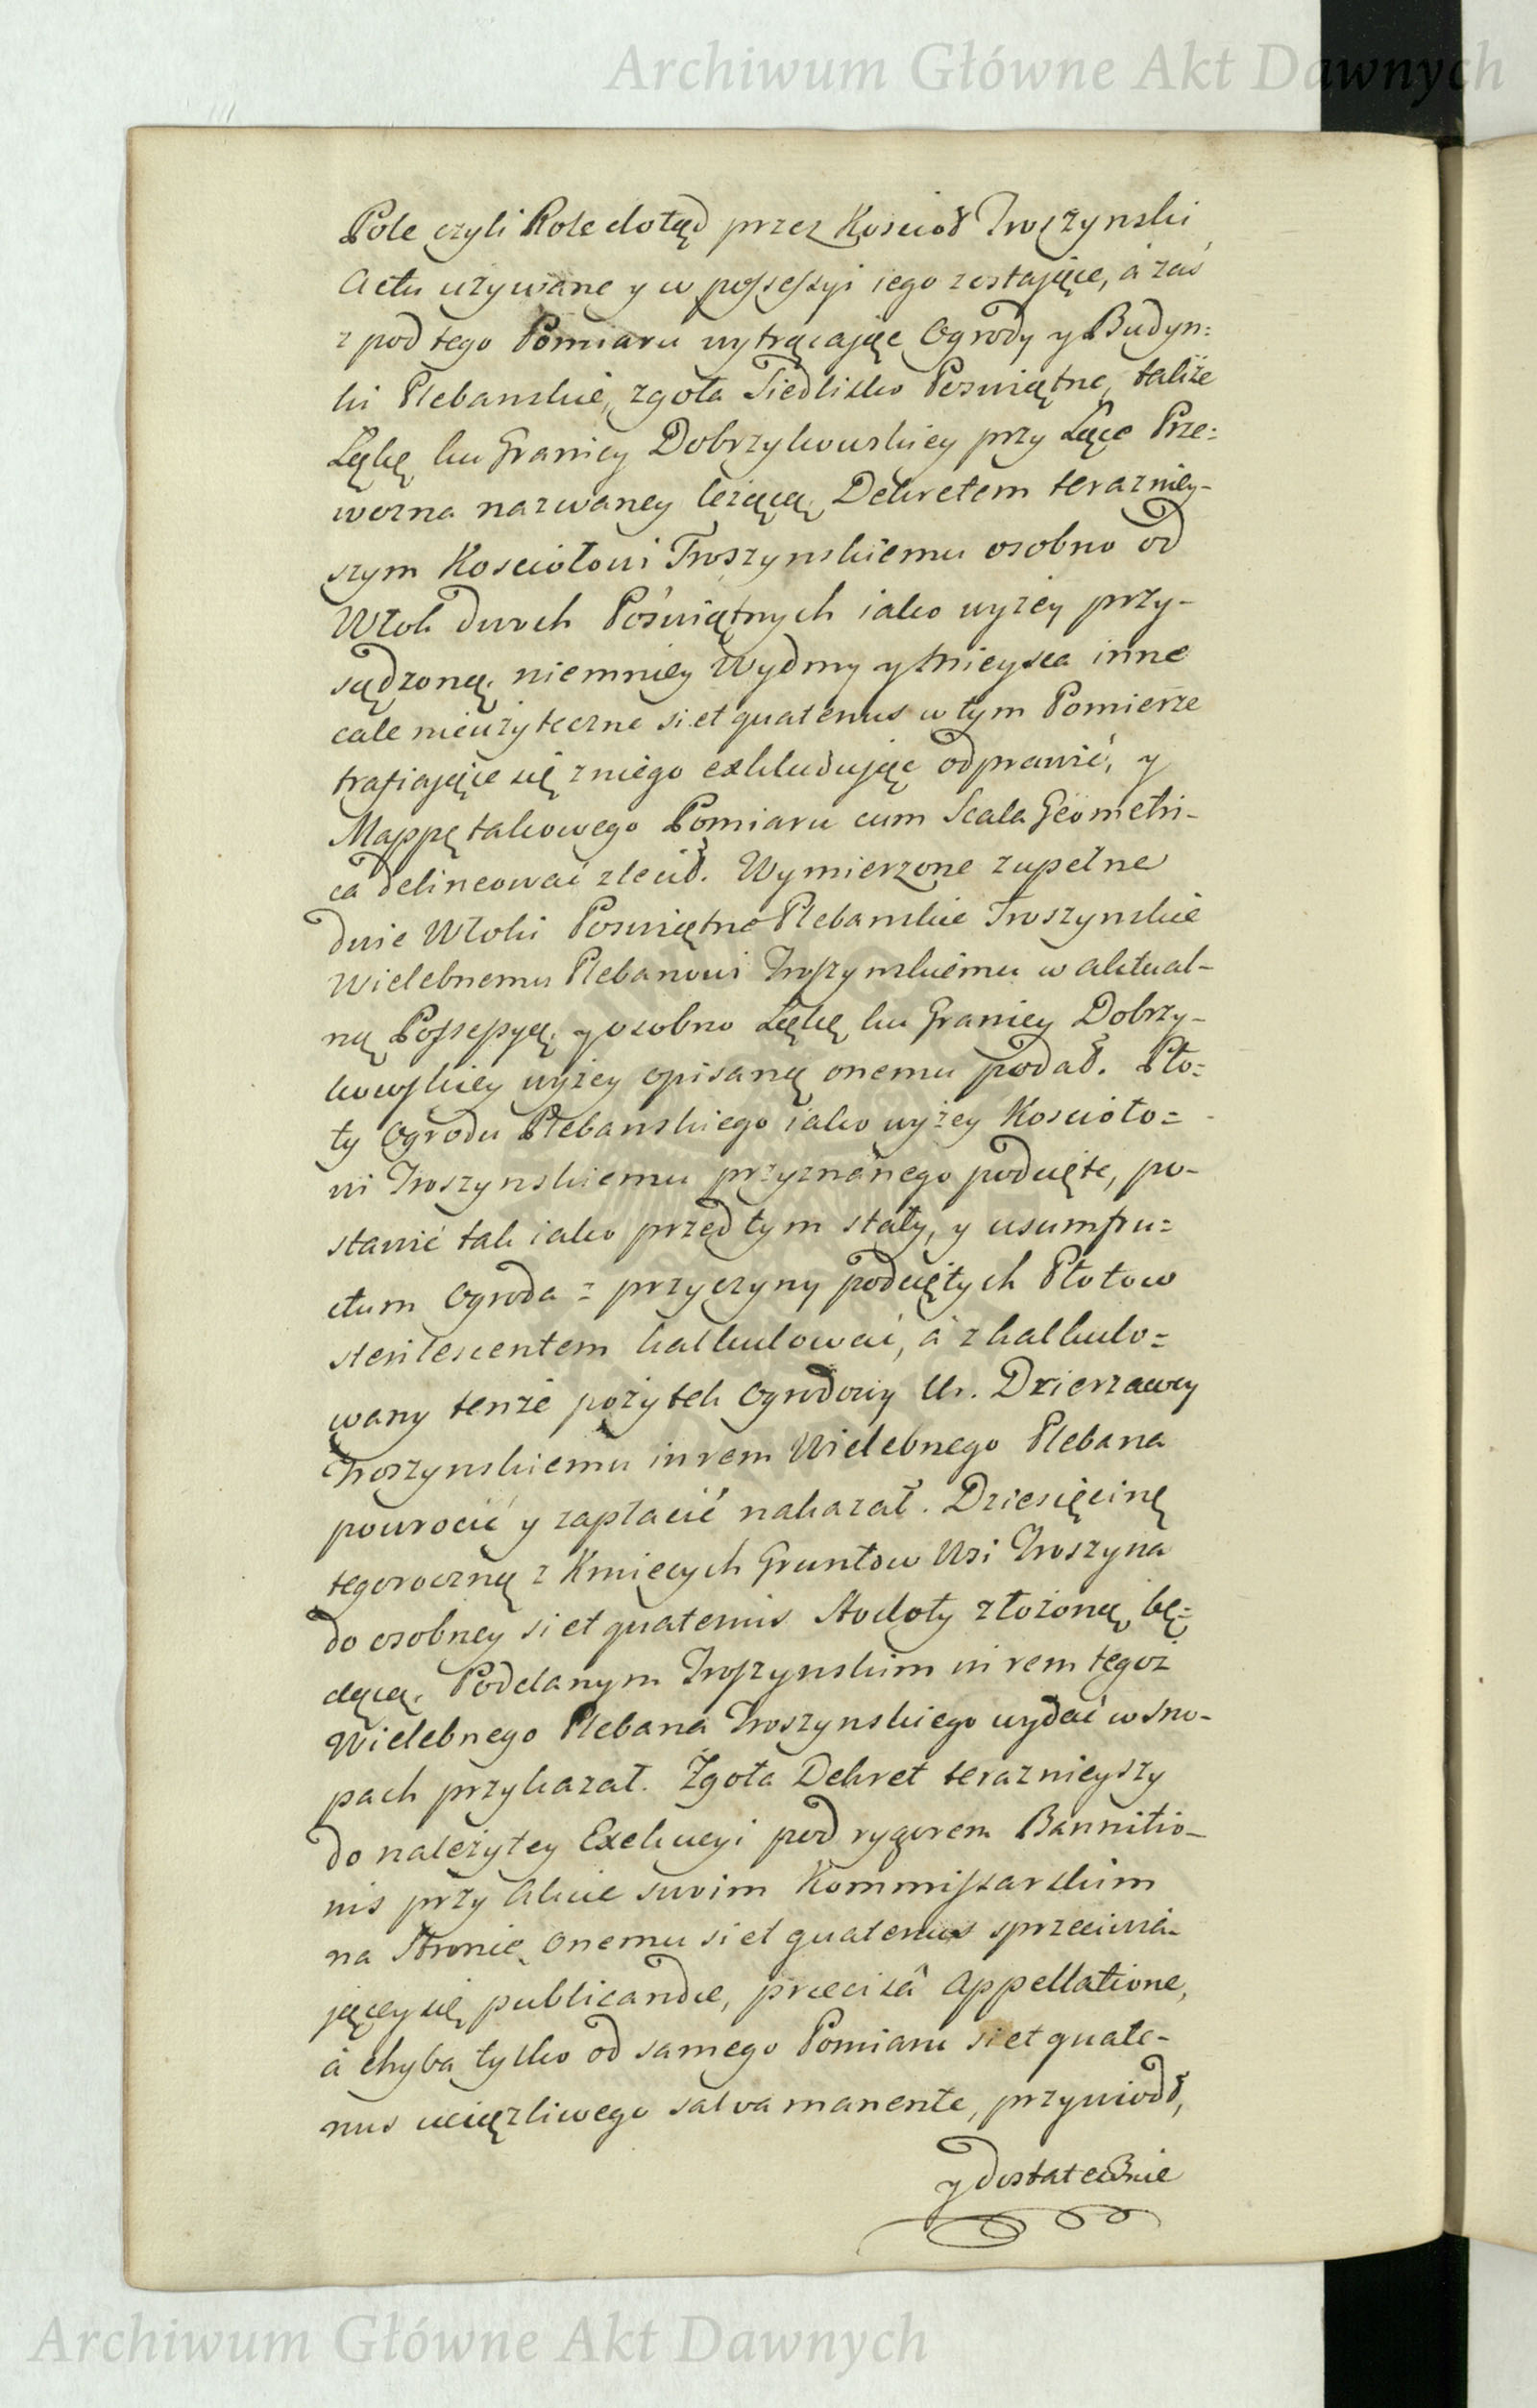 Archiwum Główne Akt Dawnych
Pole czyli Role dotąd przez Koscioł Troszynski
Actu uzywane y w possessyi iego zostaiące, á zaś
z pod tego Pomiaru wytrącaiąc Ogrody y Budyn:
ki Plebanskie, zgoła Siedlisko Poswiętne, także
Łąkę ku Granicy Dobrzykowskiey przy Łące Prze:
wozna nazwaney leżącą, Dekretem terazniey-
szym Kosciołowi Troszynskiemu osobno od
Włok dwoch Poświętnych iako wyżey przy-
sądzoną, niemniey Wydmy y mieysca inne
cale nieużyteczne si et quatenus w tym Pomierze
trafiaiące się z niego exkluduiąc odprawić, y
Mappę takowego Pomiaru cum Scala Geometri-
ca delineować zlecił. Wymierzone zupełne
dwie Włoki Poswiętne Plebanskie Troszynskie
Wielebnemu Plebanowi Troszynskiemu w aktual-
ną Possessyą, y osobno Łąkę ku Granicy Dobrzy-
kowskiey wyżey opisaną onemu podał. Pło:
ty Ogrodu Plebanskiego iako wyżey Kościoło=
wi Troszynskiemu przyznanego podcięte, po-
stawić tak iako przed tym stały, y usumfru=
ctum Ogroda z przyczyny podciętych Płotow
sterilescentem kalkulować, á zkalkulo=
wany tenże pożytek Ogrodowy Ur. Dzierzawcy
Troszynskiemu in rem Wielebnego Plebana
powrocić y zapłacić nakazał. Dziesięcinę
tegoroczną z Kmiecych Gruntow Wsi Troszyna
do osobney si et quatenus Stodoły złożoną bę=
dącą, Poddanym Troszynskim in rem tegoż
Wielebnego Plebana Troszynskiego wydać w sno-
pach przykazał. Zgoła Dekret teraznieyszy
do należytey Exekucyi pod rygorem Bannitio-
nis przy Akcie swoim Kommissarskim
na Stronie onemu si et quatenus sprzeciwia-
iącey się publicandæ, præcisâ Appellatione,
á chyba tylko od samego Pomiaru si et quate-
nus uciązliwego salva manente, przywiodł,
y dostatecznie
Archiwum Główne Akt Dawnych